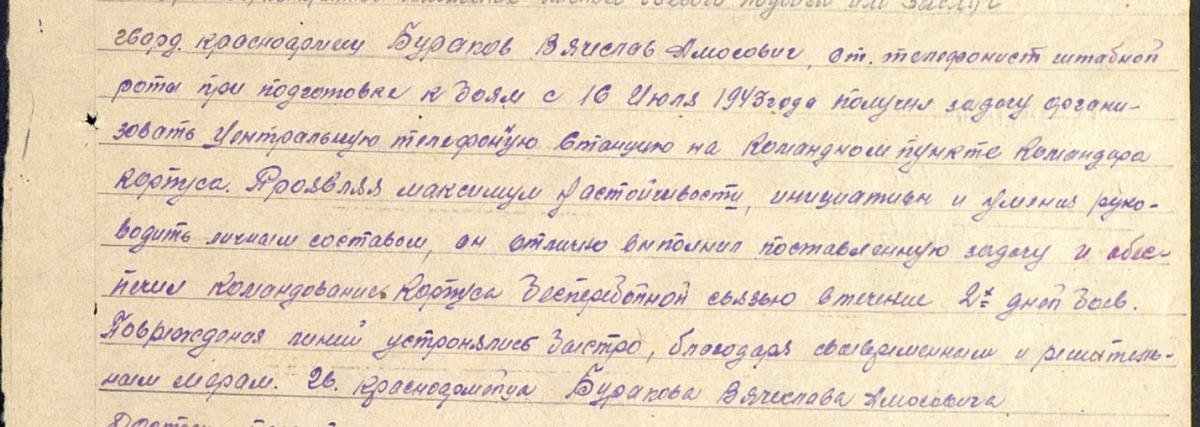 боевого подвига или заслуг
гвард. красноармеец Бураков Вячеслав Амосович, ст. телефонист штабной
роты при подготовке к боям с 16 Июля 1943 года получил задачу органи-
зовать Центральную телефонную Станцию на Командном пункте Командира
Корпуса. Проявляя максимум настойчивости, инициативы и умения руко-
водить личным составом, он отлично выполнил поставленную задачу и обес-
печил Командование Корпуса Бесперебойной связью в течение 2х дней Боев.
Повреждения линий устронялись Быстро, благодаря своевременным и решитель-
ным мерам. Гв. красноармейца Буракова Вячеслава Амосовича